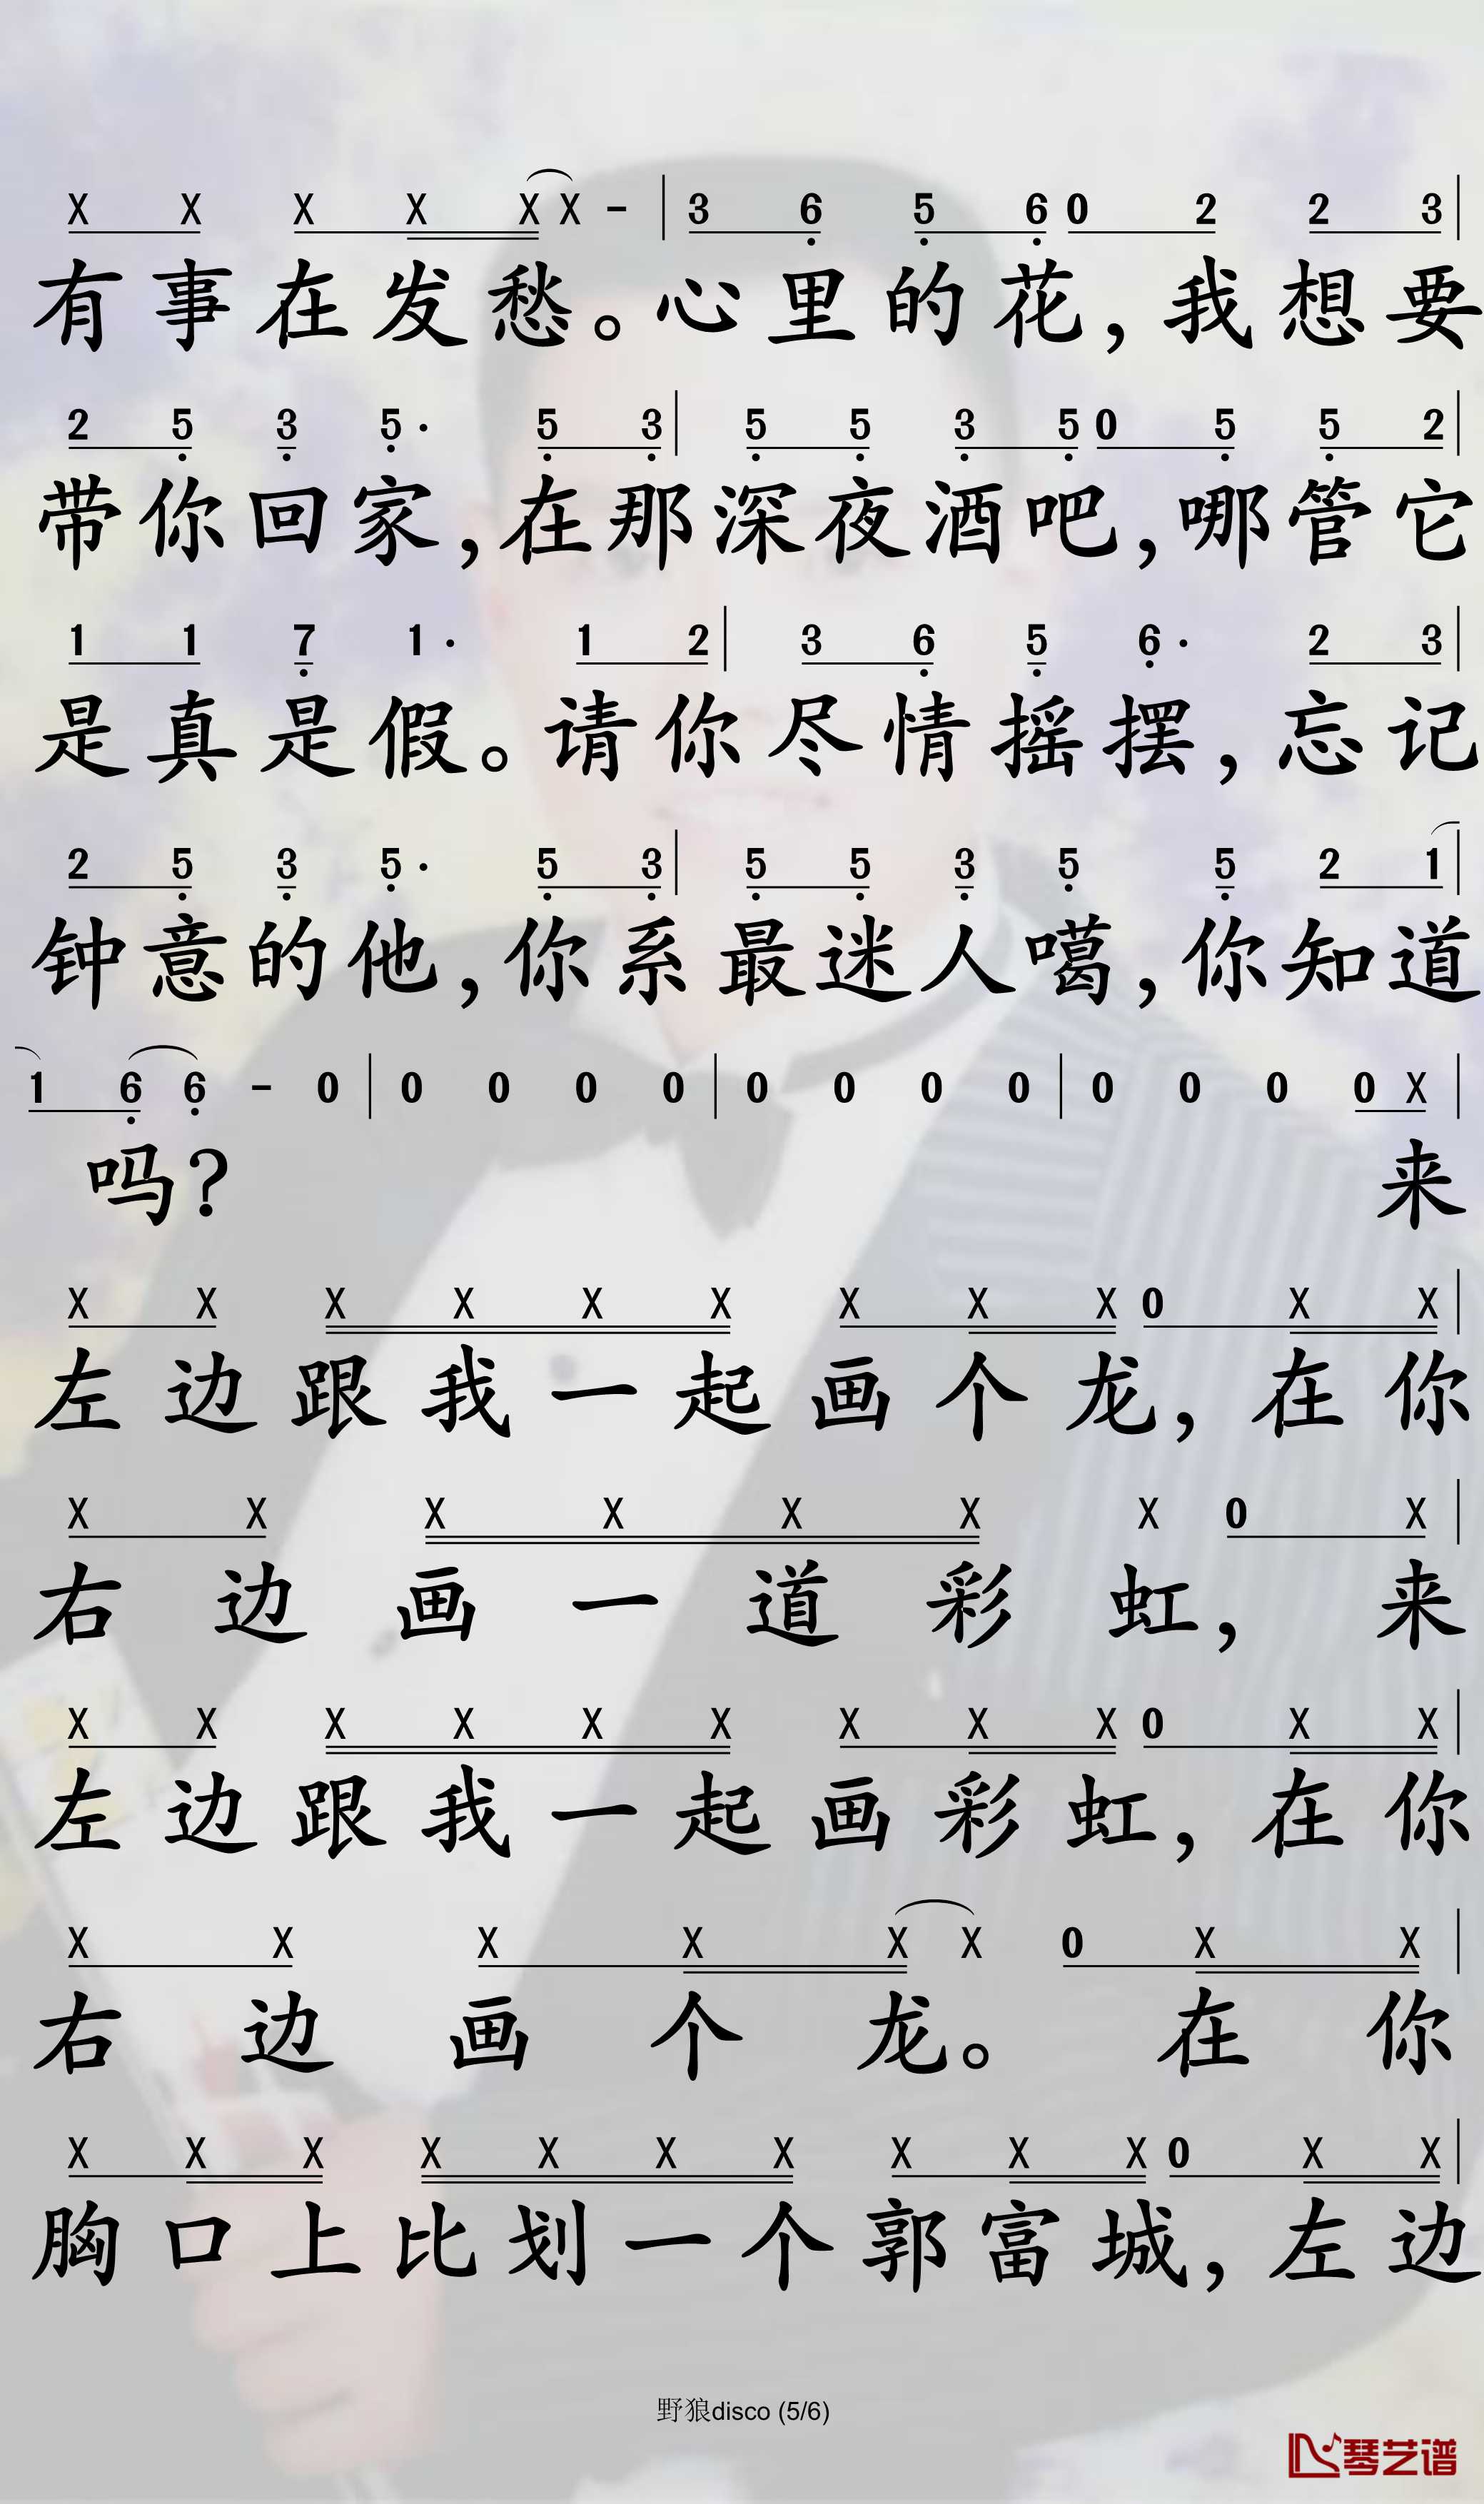 X X X X X X - | 3 6 5 6 0 2 2 3 |
有事在发愁。心里的花,我想要
2 5 3 5· 5 3 | 5 5 3 5 0 5 5 2 |
带你回家,在那深夜酒吧,哪管它
1 1 7 1· 1 2 | 3 6 5 6· 2 3 |
是真是假。请你尽情摇摆,忘记
2 5 3 5· 5 3 | 5 5 3 5 5 2 1 |
钟意的他,你系最迷人噶,你知道
1 6 6 - 0 | 0 0 0 0 | 0 0 0 0 | 0 0 0 0 X |
吗? 来
X X X X X X X X X 0 X X |
左边跟我一起画个龙,在你
X X X X X X X 0 X |
右边画一道彩虹,来
X X X X X X X X X 0 X X |
左边跟我一起画彩虹,在你
X X X X X X 0 X X |
右边画个龙。在你
X X X X X X X X X X 0 X X |
胸口上比划一个郭富城,左边
野狼disco (5/6)
琴艺谱